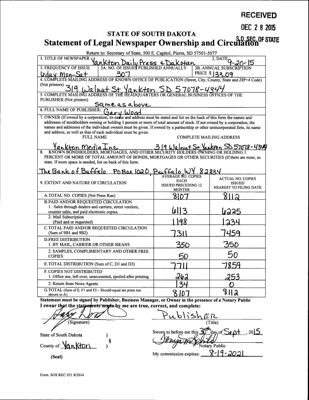 RECEIVED
DEC 28 2015
S.D. SEC. OF STATE
STATE OF SOUTH DAKOTA
Statement of Legal Newspaper Ownership and Circulation
Return to: Secretary of State, 500 E. Capitol, Pierre, SD 57501-5077
1. TITLE OF NEWSPAPER Yankton Daily Press + Dakotan
2. DATE 9-20-15
3. FREQUENCY OF ISSUE
6day Mon-Sat
3A. NO. OF ISSUES PUBLISHED ANNUALLY
307
3B. ANNUAL SUBSCRIPTION
PRICE $133.09
4. COMPLETE MAILING ADDRESS OF KNOWN OFFICE OF PUBLICATION (Street, City, County, State and ZIP+4 Code)
(Not printers) 319 Walnut St Yankton SD 57078-4344
5. COMPLETE MAILING ADDRESS OF THE HEADQUARTERS OR GENERAL BUSINESS OFFICES OF THE
PUBLISHER (Not printer)
same as above
6. FULL NAME OF PUBLISHER: Gary Wood
7. OWNER (If owned by a corporation, its name and address must be stated and list on the back of this form the names and
addresses of stockholders owning or holding 1 percent or more of total amount of stock. If not owned by a corporation, the
names and addresses of the individual owners must be given. If owned by a partnership or other unincorporated firm, its name
and address, as well as that of each individual must be given.
FULL NAME COMPLETE MAILING ADDRESS
Yankton Media Inc. 319 Walnut St Yankton SD 57078-4344
8. KNOWN BONDHOLDERS, MORTGAGES, AND OTHER SECURITY HOLDERS OWNING OR HOLDING 1
PERCENT OR MORE OF TOTAL AMOUNT OF BONDS, MORTGAGES OR OTHER SECURITIES (If there are none, so
state. If more space is needed, list on back of this form.
The Bank of Buffalo PO Box 1020, Buffalo WY 82834
9. EXTENT AND NATURE OF CIRCULATION
AVERAGE NO. COPIES
EACH
ISSUED PRECEDING 12
MONTHS
ACTUAL NO. COPIES
ISSUED
NEAREST TO FILING DATE
A.TOTAL NO. COPIES (Net Press Run) 8107 8112
B.PAID AND/OR REQUESTED CIRCULATION
1. Sales through dealers and carriers, street vendors,
counter sales, and paid electronic copies. 6113 6225
2. Mail Subscription
(Paid and or requested) 1198 1234
C.TOTAL PAID AND/OR REQUESTED CIRCULATION
(Sum of 9B1 and 9B2) 7311 7459
D.FREE DISTRIBUTION
1. BY MAIL, CARRIER OR OTHER MEANS 350 350
2. SAMPLES, COMPLIMENTARY AND OTHER FREE
COPIES 50 50
E.TOTAL DISTRIBUTION (Sum of C, D1 and D2) 7711 7859
F.COPIES NOT DISTRIBUTED
1. Office use, left over, unaccounted, spoiled after printing 262 253
2. Return from News Agents 134 0
G.TOTAL (Sum of E, F1 and F2 - Should equal net press run
shown in A) 8107 8112
Statement must be signed by Publisher, Business Manager, or Owner in the presence of a Notary Public
I swear that the statements made by me are true, correct, and complete:
Publisher
(Signature) (Title)
State of South Dakota )
§
County of Yankton )
Sworn to before me this 30th day of Sept, 2015
Notary Public
(Seal) My commission expires: 8-19-2021
Form: SOS REC 051 8/2014